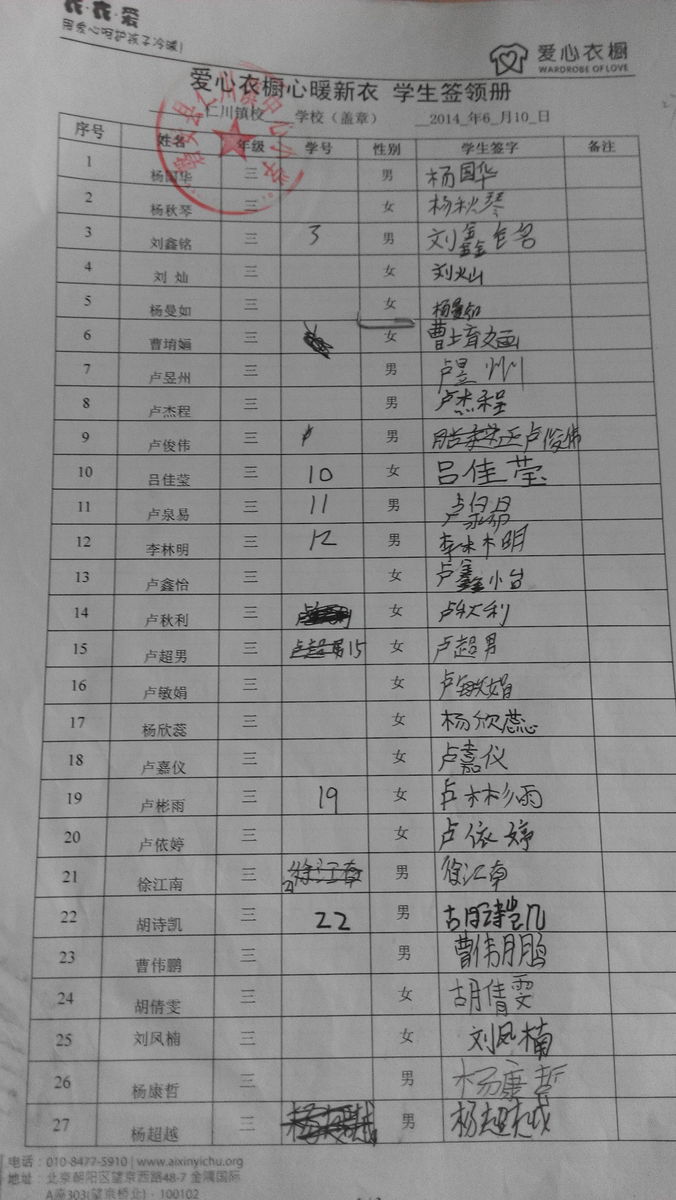 衣·衣·爱
用爱心呵护孩子冷暖!
爱心衣橱
WARDROBE OF LOVE
爱心衣橱心暖新衣 学生签领册
仁川镇校 学校（盖章） 2014_年6_月10_日
序号 姓名 年级 学号 性别 学生签字 备注
1 杨国华 三 男 杨国华
2 杨秋琴 三 女 杨秋琴
3 刘鑫铭 三 3 男 刘鑫铭
4 刘灿 三 女 刘灿
5 杨曼如 三 女 杨曼如
6 曹堉婳 三 女 曹堉婳
7 卢昱州 三 男 卢昱州
8 卢杰程 三 男 卢杰程
9 卢俊伟 三 男 卢俊伟
10 吕佳莹 三 10 女 吕佳莹
11 卢泉易 三 11 男 卢泉易
12 李林明 三 12 男 李林明
13 卢鑫怡 三 女 卢鑫怡
14 卢秋利 三 女 卢秋利
15 卢超男 三 卢超男15 女 卢超男
16 卢敏娟 三 女 卢敏娟
17 杨欣蕊 三 女 杨欣蕊
18 卢嘉仪 三 女 卢嘉仪
19 卢彬雨 三 19 女 卢彬雨
20 卢依婷 三 女 卢依婷
21 徐江南 三 徐江南 21 男 徐江南
22 胡诗凯 三 22 男 胡诗凯
23 曹伟鹏 三 男 曹伟鹏
24 胡倩雯 三 女 胡倩雯
25 刘凤楠 三 女 刘凤楠
26 杨康哲 三 男 杨康哲
27 杨超越 三 男 杨超越
电话：010-8477-5910 | www.aixinyichu.org
地址：北京朝阳区望京西路48-7 金隅国际
A座303(望京桥北) · 100102